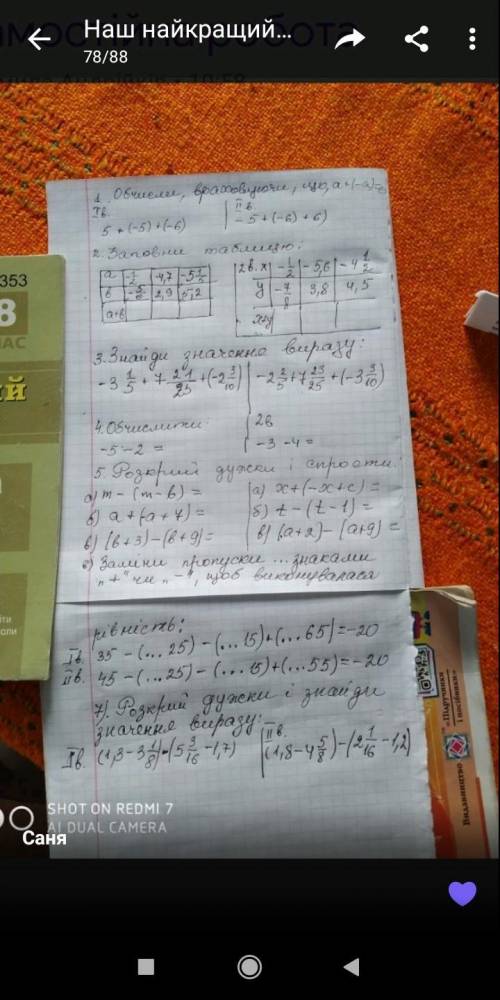 Наш найкращий...
78/88
353
8
АС
1. Обчисли, враховуючи, що, a+(-a)=0
Iв.
5+(-5)+(-6)
IIв.
-5+(-6)+6)
2. Заповни таблицю:
a | -1/2 | -4,7 | -5 1/5
в | -5/6 | 2,9 | 5,2
a+в
2в. x | -1/2 | -5,6 | -4 1/2
y | -7/8 | 3,8 | 4,5
x+y
3. Знайди значення виразу:
-3 1/5 + 7 21/25 + (-2 3/10) | -2 2/5 + 7 23/25 + (-3 3/10)
4. Обчислити:
-5-2=
2в
-3-4=
5. Розкрий дужки і спрости.
а) m-(m-в)= | а) x+(-x+c)=
б) a+(a+7)= | б) t-(t-1)=
в) (в+3)-(в+9)= | в) (a+2)-(a+9)=
6) Заміни пропуски ... знаками
„+" чи „-", щоб виконувалася
рівність:
Iв. 35-(...25)-(...15)+(...65)=-20
IIв. 45-(...25)-(...15)+(...55)=-20
7). Розкрий дужки і знайди
значення виразу:
Iв. (1,3-3 1/8)-(5 3/16-1,7)
IIв.
(1,8-4 5/8)-(2 1/16-1,2)
«Підручники
і посібники»
Видавництво
SHOT ON REDMI 7
AI DUAL CAMERA
Саня